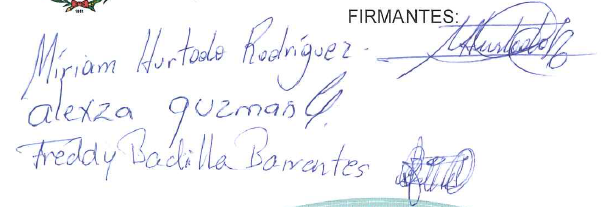 FIRMANTES:
Miriam Hurtado Rodríguez.
alexza guzman
Freddy Badilla Barrantes